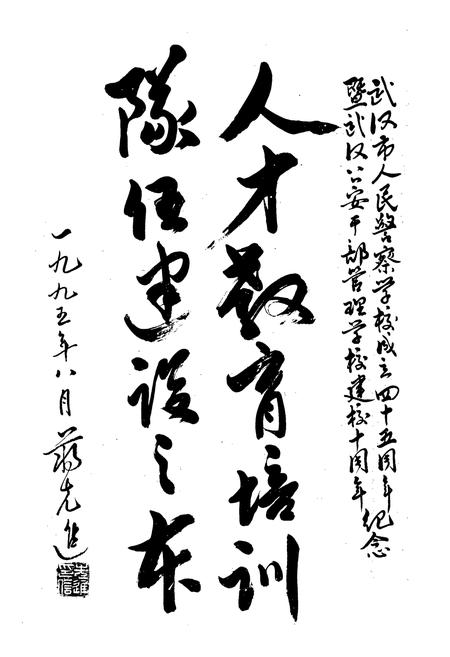 武汉市人民警察学校成立四十五周年
暨武汉公安干部管理学校建校十周年纪念
人才教育培训
隊伍建设之本
一九九五年八月 蒋先進